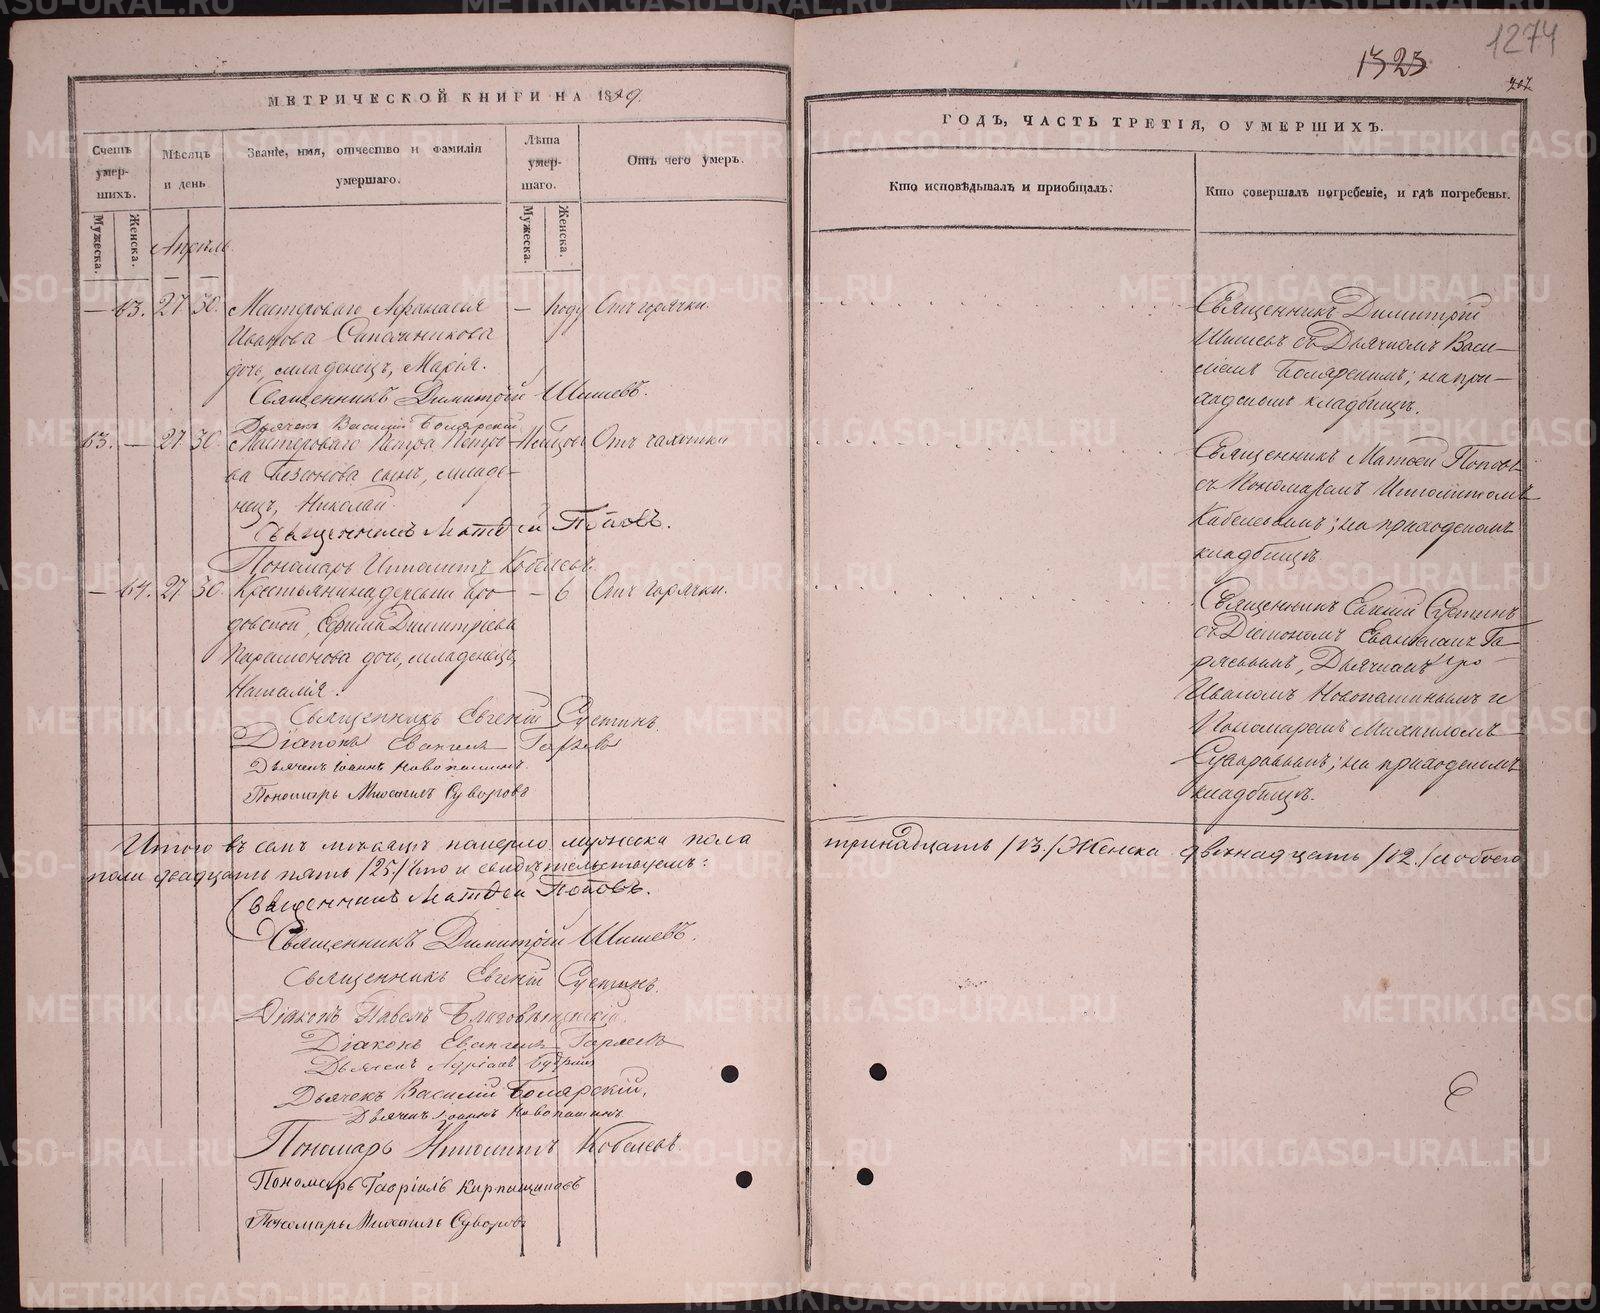 1274
1323
МЕТРИЧЕСКОЙ КНИГИ НА 18
ГОДЪ, ЧАСТЬ ТРЕТІЯ, О УМЕРШИХЪ.
Счетъ умер-шихъ.
Мѣсяцъ и день
Званіе, имя, отчество и фамилія умершаго.
Лѣта умер-шаго.
Отъ чего умеръ.
Кто исповѣдывалъ и пріобщалъ.
Кто совершалъ погребеніе, и гдѣ погребены.
Мужеска.
Женска.
Мужеска.
Женска.
Апрѣль
— 63. 27 30. Мастероваго Афанасья — 1 году Отъ горячки.
Иванова Сапожникова
дочь, младенецъ, Марія.
Священникъ Димитрій Шишевъ.
Дьячекъ Василій Боярскій
63. — 27 30. Мастероваго Петра Петро- Отъ чахотки
ва сынъ, младе-
нецъ, Николай.
Священникъ Матѳей Поповъ.
Пономарь Ипполитъ Кобелевъ.
— 64. 27 30. Крестьянина деревни Бро- — 6 Отъ горячки.
довской, Ефима Димитріева
Парамонова дочь, младенецъ,
Наталія.
Священникъ Евгеній Суетинъ.
Діаконъ Евангелъ
Дьячекъ Іоаннъ Новопашинъ.
Пономарь Михаилъ Суворовъ
Священникъ Димитрій
Шишевъ съ Дьячкомъ Васи-
ліемъ Боярскимъ; на при-
ходскомъ кладбищѣ.
Священникъ Матѳей Поповъ
съ Пономаремъ Ипполитомъ
Кобелевымъ; на приходскомъ
кладбищѣ.
Священникъ Евгеній Суетинъ
съ Діакономъ Евангеломъ Га-
Дьячкомъ
Иваномъ Новопашинымъ и
Пономаремъ Михаиломъ
Суворовымъ; на приходскомъ
кладбищѣ.
Итого въ семъ мѣсяцѣ померло мужеска пола
тринадцать /13./ Женска двенадцать /12./ и обоего
пола двадцать пять /25./ Что и свидѣтельствуемъ:
Священникъ Матѳей Поповъ.
Священникъ Димитрій Шишевъ.
Священникъ Евгеній Суетинъ.
Діаконъ Павелъ Благовѣщенскій.
Діаконъ Евангелъ
Дьячекъ Адріанъ
Дьячекъ Василій Боярскій.
Дьячекъ Іоаннъ Новопашинъ
Пономарь Ипполитъ Кобелевъ.
Пономарь Гавріилъ Кирпищиковъ
Пономарь Михаилъ Суворовъ
METRIKI.GASO-URAL.RU